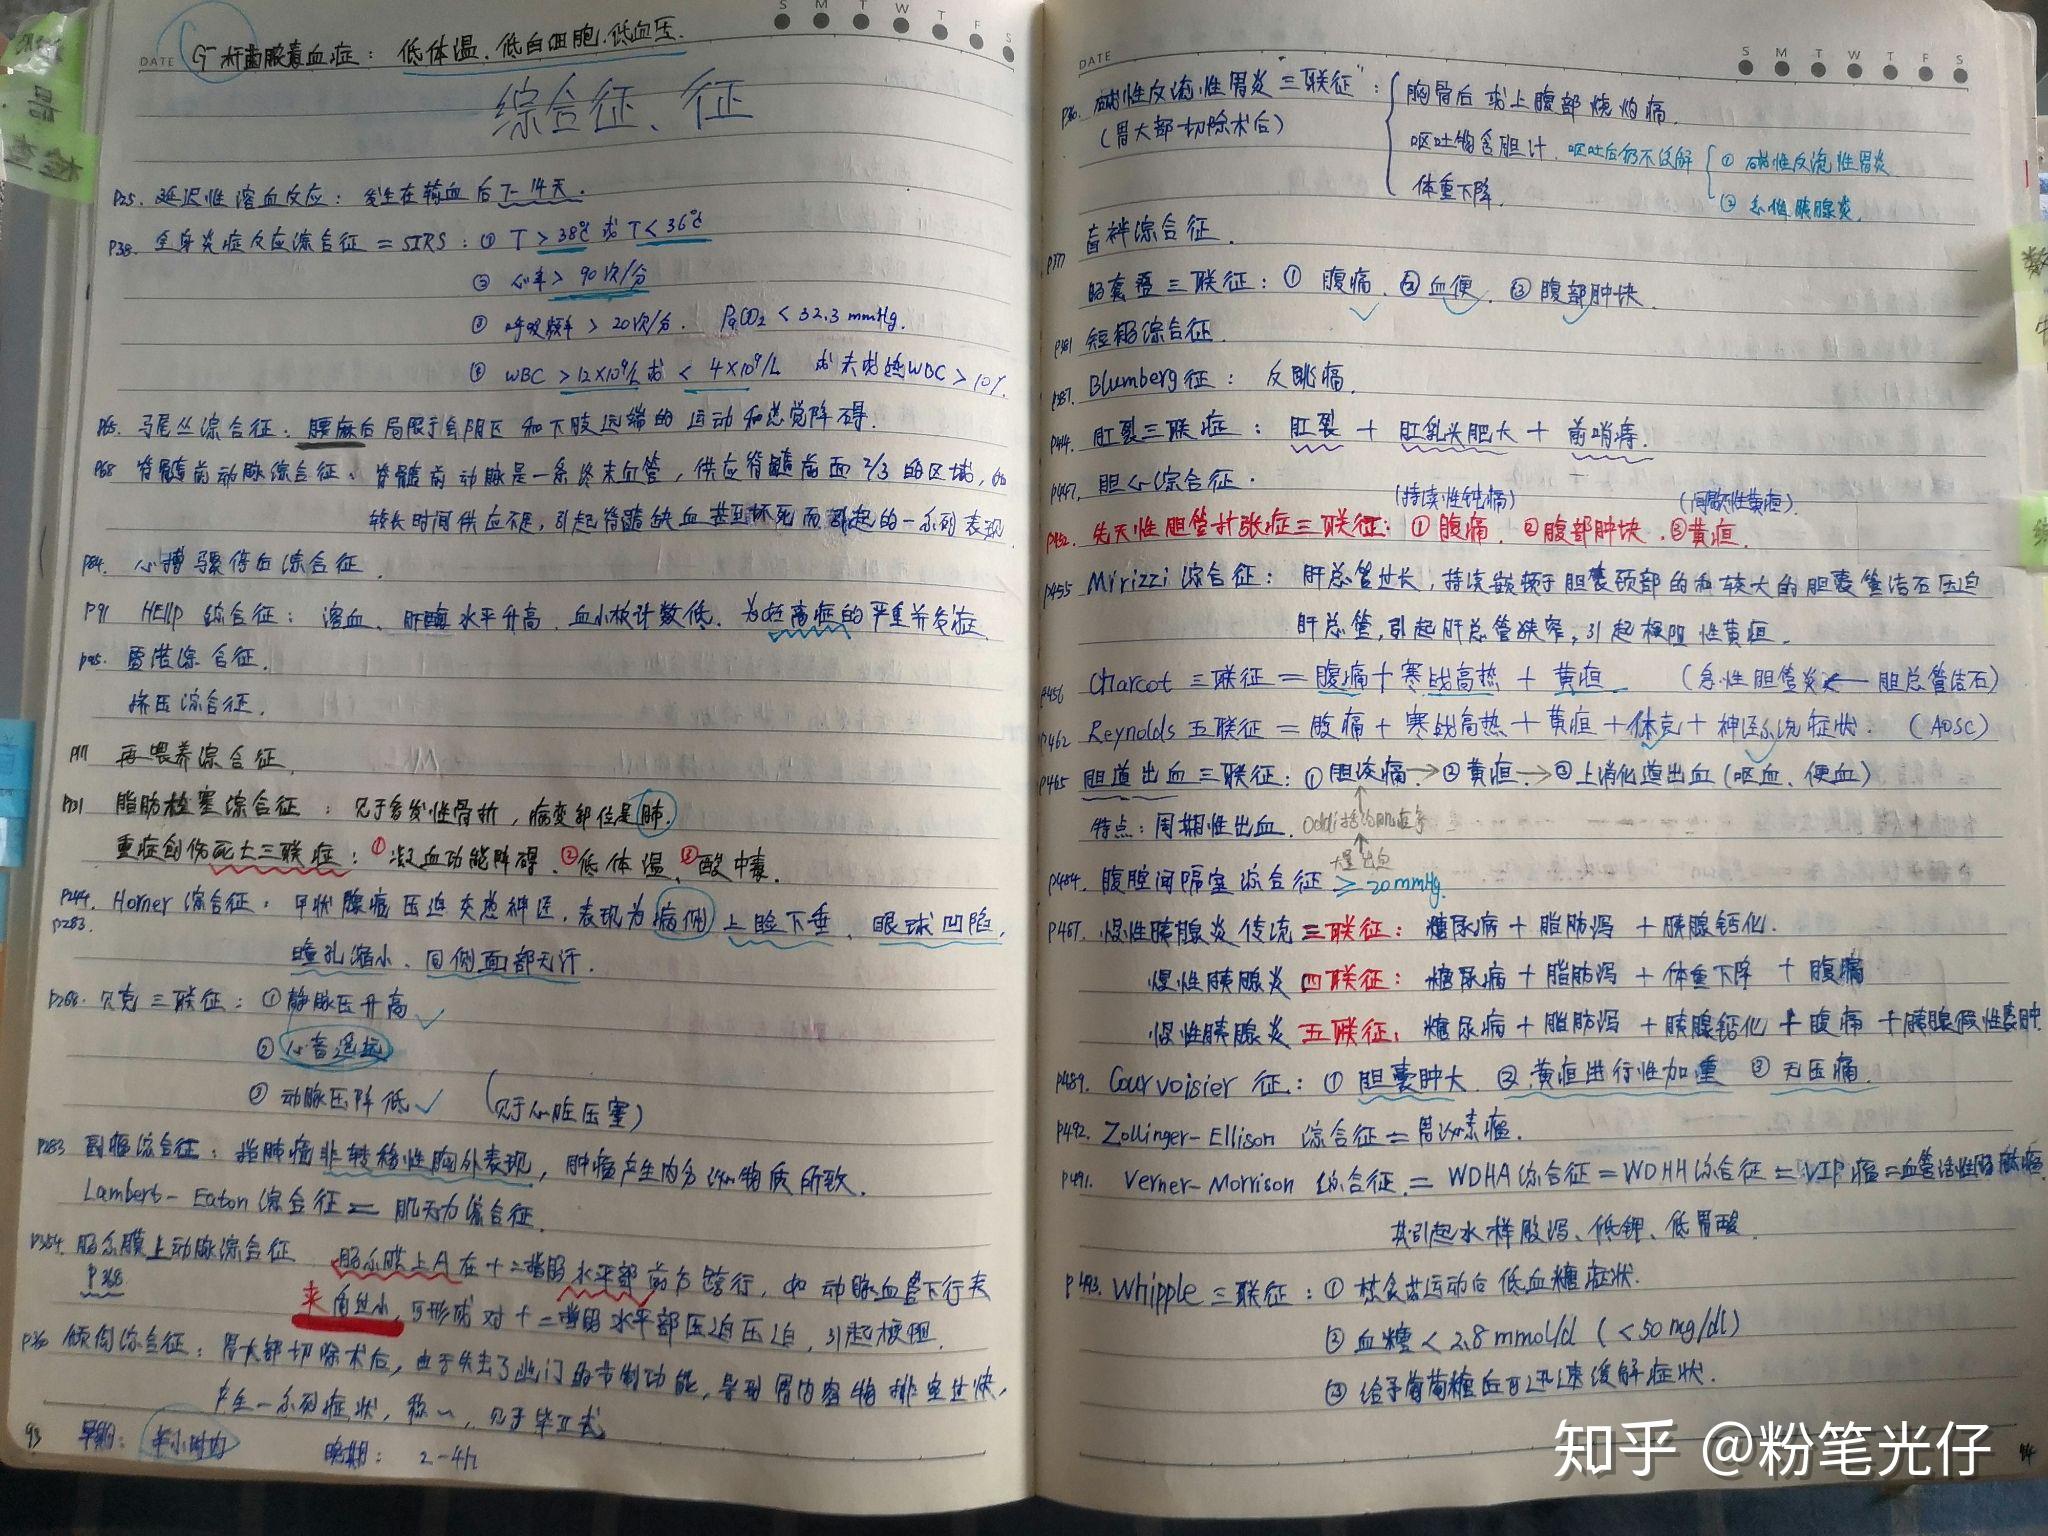 S M T W T F S
DATE G⁻杆菌脓毒血症：低体温、低白细胞、低血压.
综合征、征
P25. 延迟性溶血反应：发生在输血后7-14天.
P38. 全身炎症反应综合征 = SIRS：① T > 38℃ 或 T < 36℃
② 心率 > 90次/分
③ 呼吸频率 > 20次/分. PaCO₂ < 32.3 mmHg.
④ WBC > 12×10⁹/L 或 < 4×10⁹/L 或未成熟WBC > 10%.
P65. 马尾丛综合征：腰麻后局限于会阴区和下肢远端的运动和感觉障碍.
P68 脊髓前动脉综合征：脊髓前动脉是一条终末血管，供应脊髓前面2/3的区域，如
较长时间供应不足，引起脊髓缺血甚至坏死而引起的一系列表现.
P84. 心搏骤停后综合征.
P91 HELLP 综合征：溶血、肝酶水平升高、血小板计数低. 为妊高症的严重并发症.
P95. 雷诺综合征.
挤压综合征.
P111 再喂养综合征.
P131 脂肪栓塞综合征：见于多发性骨折，病变部位是肺.
重症创伤死亡三联症：①凝血功能障碍、②低体温、③酸中毒.
P244. Horner 综合征：甲状腺癌压迫交感神经，表现为病侧上睑下垂、眼球凹陷、
P283. 瞳孔缩小、同侧面部无汗.
P268. 贝克三联征：①静脉压升高
②心音遥远
③动脉压降低 （见于心脏压塞）
P283 副癌综合征：指肺癌非转移性胸外表现，肿瘤产生内分泌物质所致.
Lambert-Eaton综合征 = 肌无力综合征.
P354. 肠系膜上动脉综合征 肠系膜上A在十二指肠水平部前方跨行，如动脉血管下行夹
P368 夹角过小，可形成对十二指肠水平部压迫压迫，引起梗阻.
P360 倾倒综合征：胃大部切除术后，由于失去了幽门的节制功能，导致胃内容物排空过快，
产生一系列症状，称~，见于毕Ⅱ式
93 早期：半小时内 晚期：2-4h
DATE S M T W T F S
P360. 碱性反流性胃炎三联征：胸骨后或上腹部烧灼痛.
（胃大部切除术后） 呕吐物含胆汁，呕吐后仍不缓解 ① 碱性反流性胃炎
体重下降. ② 急性胰腺炎.
盲袢综合征.
P377 肠套叠三联征：① 腹痛、② 血便、③ 腹部肿块.
P381 短肠综合征.
P387. Blumberg征：反跳痛.
P414. 肛裂三联症：肛裂 + 肛乳头肥大 + 前哨痔.
P447. 胆心综合征.
（持续性钝痛） （间歇性黄疸）
P452. 先天性胆管扩张症三联征：①腹痛、②腹部肿块、③黄疸.
P455 Mirizzi 综合征：肝总管过长，持续嵌顿于胆囊颈部的和较大的胆囊管结石压迫
肝总管，引起肝总管狭窄，引起梗阻性黄疸.
P456 Charcot 三联征 = 腹痛 + 寒战高热 + 黄疸 （急性胆管炎 ← 胆总管结石）
P462 Reynolds 五联征 = 腹痛 + 寒战高热 + 黄疸 + 休克 + 神经系统症状. （AOSC）
P465 胆道出血三联征：①胆绞痛→②黄疸→③上消化道出血（呕血、便血）
特点：周期性出血. Oddi括约肌痉挛
大量出血
P484. 腹腔间隔室综合征 ≥ 20mmHg.
P487. 慢性胰腺炎传统三联征：糖尿病 + 脂肪泻 + 胰腺钙化.
慢性胰腺炎四联征：糖尿病 + 脂肪泻 + 体重下降 + 腹痛
慢性胰腺炎五联征：糖尿病 + 脂肪泻 + 胰腺钙化 + 腹痛 + 胰腺假性囊肿.
P489. Courvoisier 征：① 胆囊肿大 ② 黄疸进行性加重 ③ 无压痛.
P492. Zollinger-Ellison 综合征 = 胃泌素瘤.
P491. Verner-Morrison 综合征 = WDHA综合征 = WDHH综合征 = VIP瘤 = 血管活性肠肽瘤.
共引起水样腹泻、低钾、低胃酸
P493. Whipple 三联征：① 禁食或运动后低血糖症状.
② 血糖 < 2.8 mmol/dl (< 50 mg/dl)
③ 给予葡萄糖后可迅速缓解症状.
94
知乎 @粉笔光仔